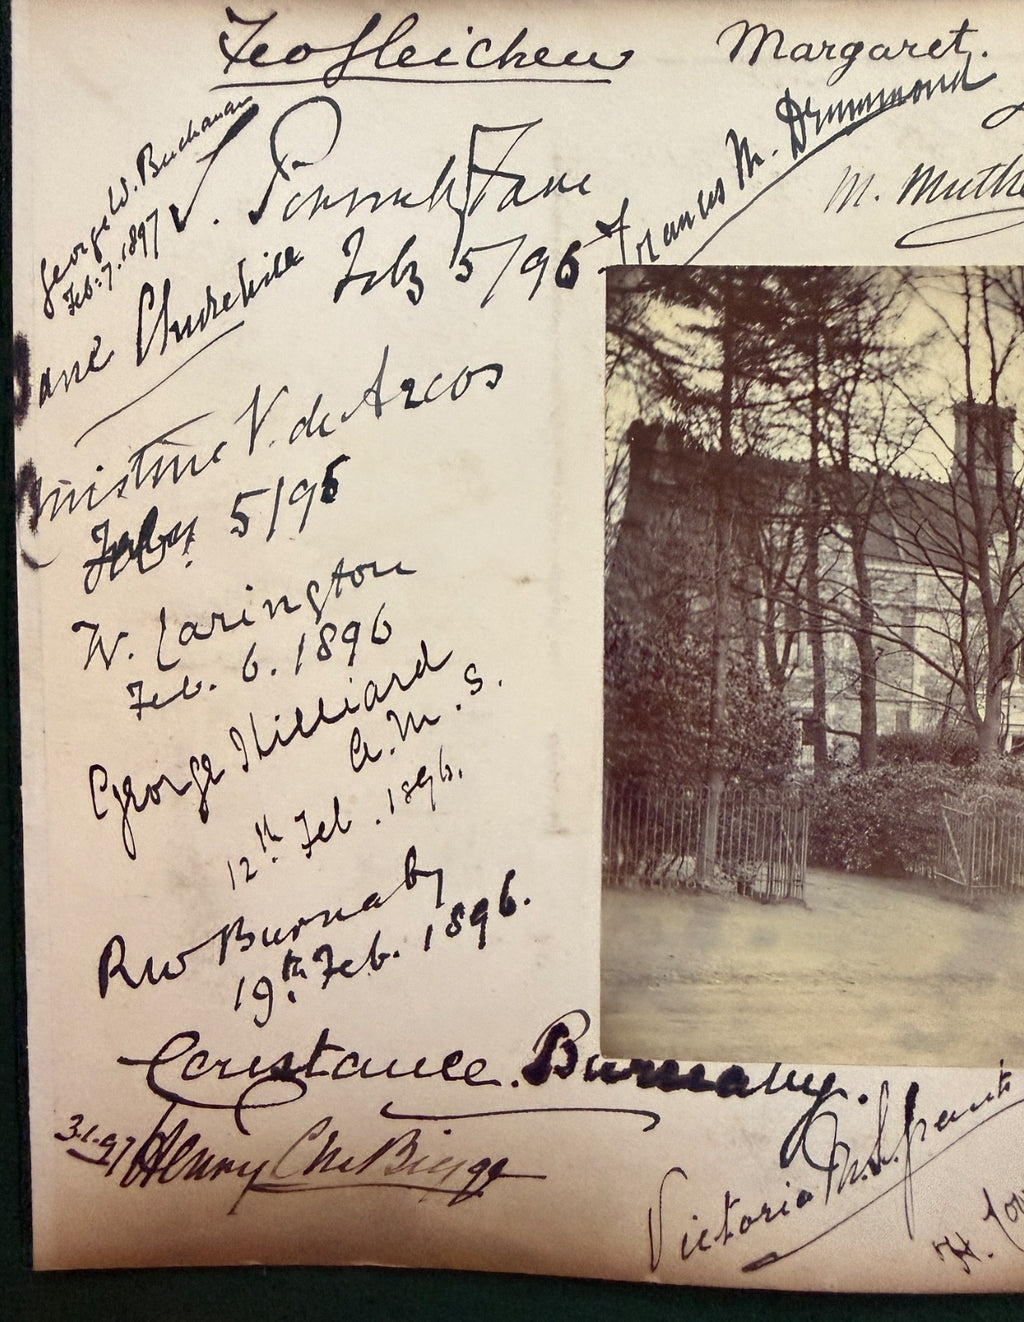 Feo Gleichen
Margaret.
George W. Buchanan
Feb: 7. 1897
V. Ponsonby Fane
Feb 5/96
Frances M. Drummond
M. Muthe
ane Churchill
hristine V. de Arcos
Feby. 5/96
W. Carington
Feb. 6. 1896
George Hilliard
A.M.S.
12th Feb. 1896.
RW Burnaby
19th Feb. 1896.
Constance. Burnaby.
3.1.97
Henry Chs Bigge
Victoria M. S. Grant
H.